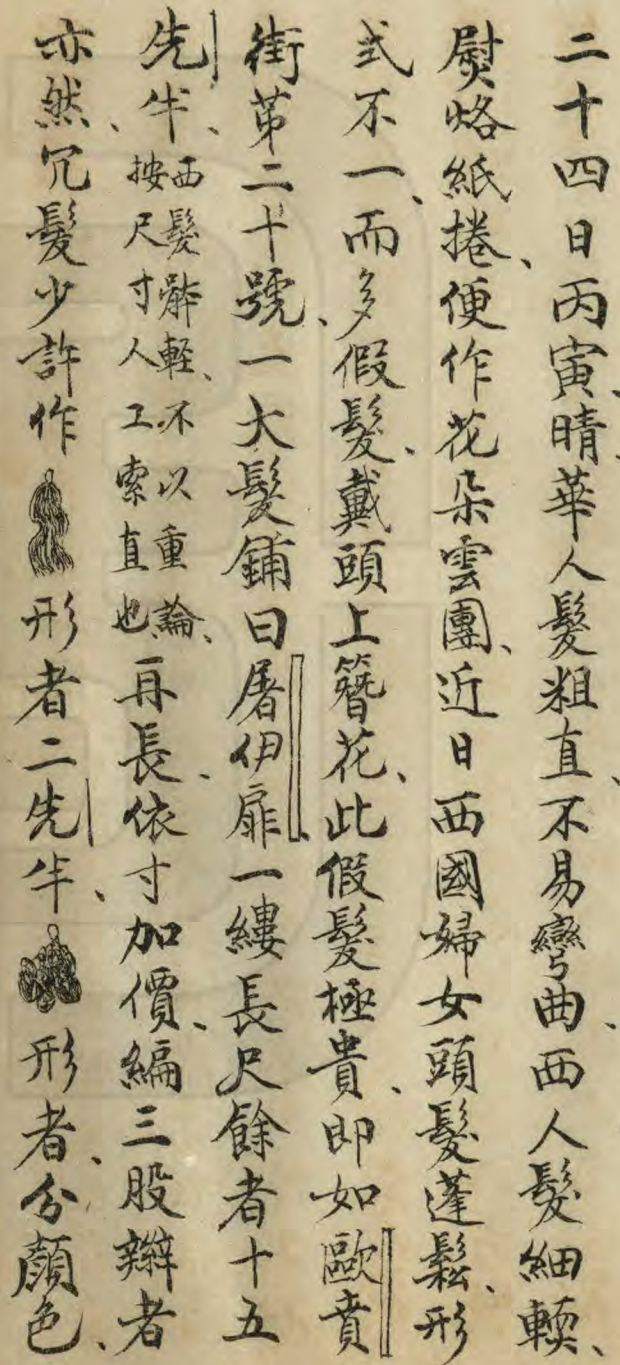 二十四日丙寅晴華人髮粗直、不易彎曲、西人髮細輭、
熨烙紙捲、便作花朶雲團、近日西國婦女頭髮蓬鬆、形
式不一、而多假髮、戴頭上簪花、此假髮極貴、即如歐賁
街苐二十號、一大髮鋪曰屠伊扉、一縷長尺餘者十五
先半、西髮骵軽、不以重論、按尺寸人工索直也、再長、依寸加價、編三股辮者
亦然、冗髮少許作形者二先半、形者、分顏色、